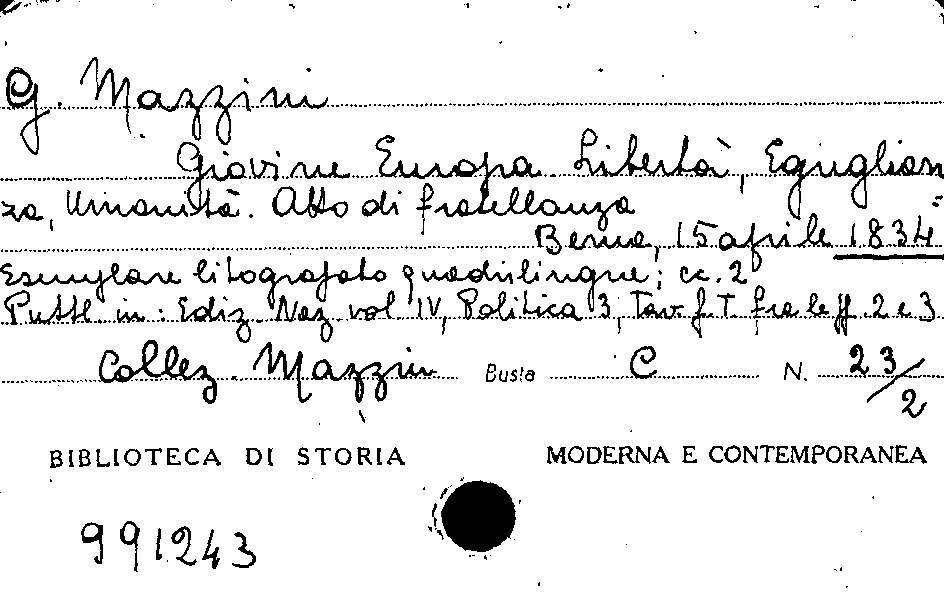 G. Mazzini
Giovine Europa. Libertà, Eguglian=
za, Umanità. Atto di fratellanza
Berna, 15 aprile 1834
Esemplare litografato quadrilingue; cc. 2
Pubbl. in: Ediz. Naz. vol IV, Politica 3, Tav. f. T. fra le ff. 2 e 3
Collez. Mazzini Busta C N. 23/2
BIBLIOTECA DI STORIA MODERNA E CONTEMPORANEA
991243